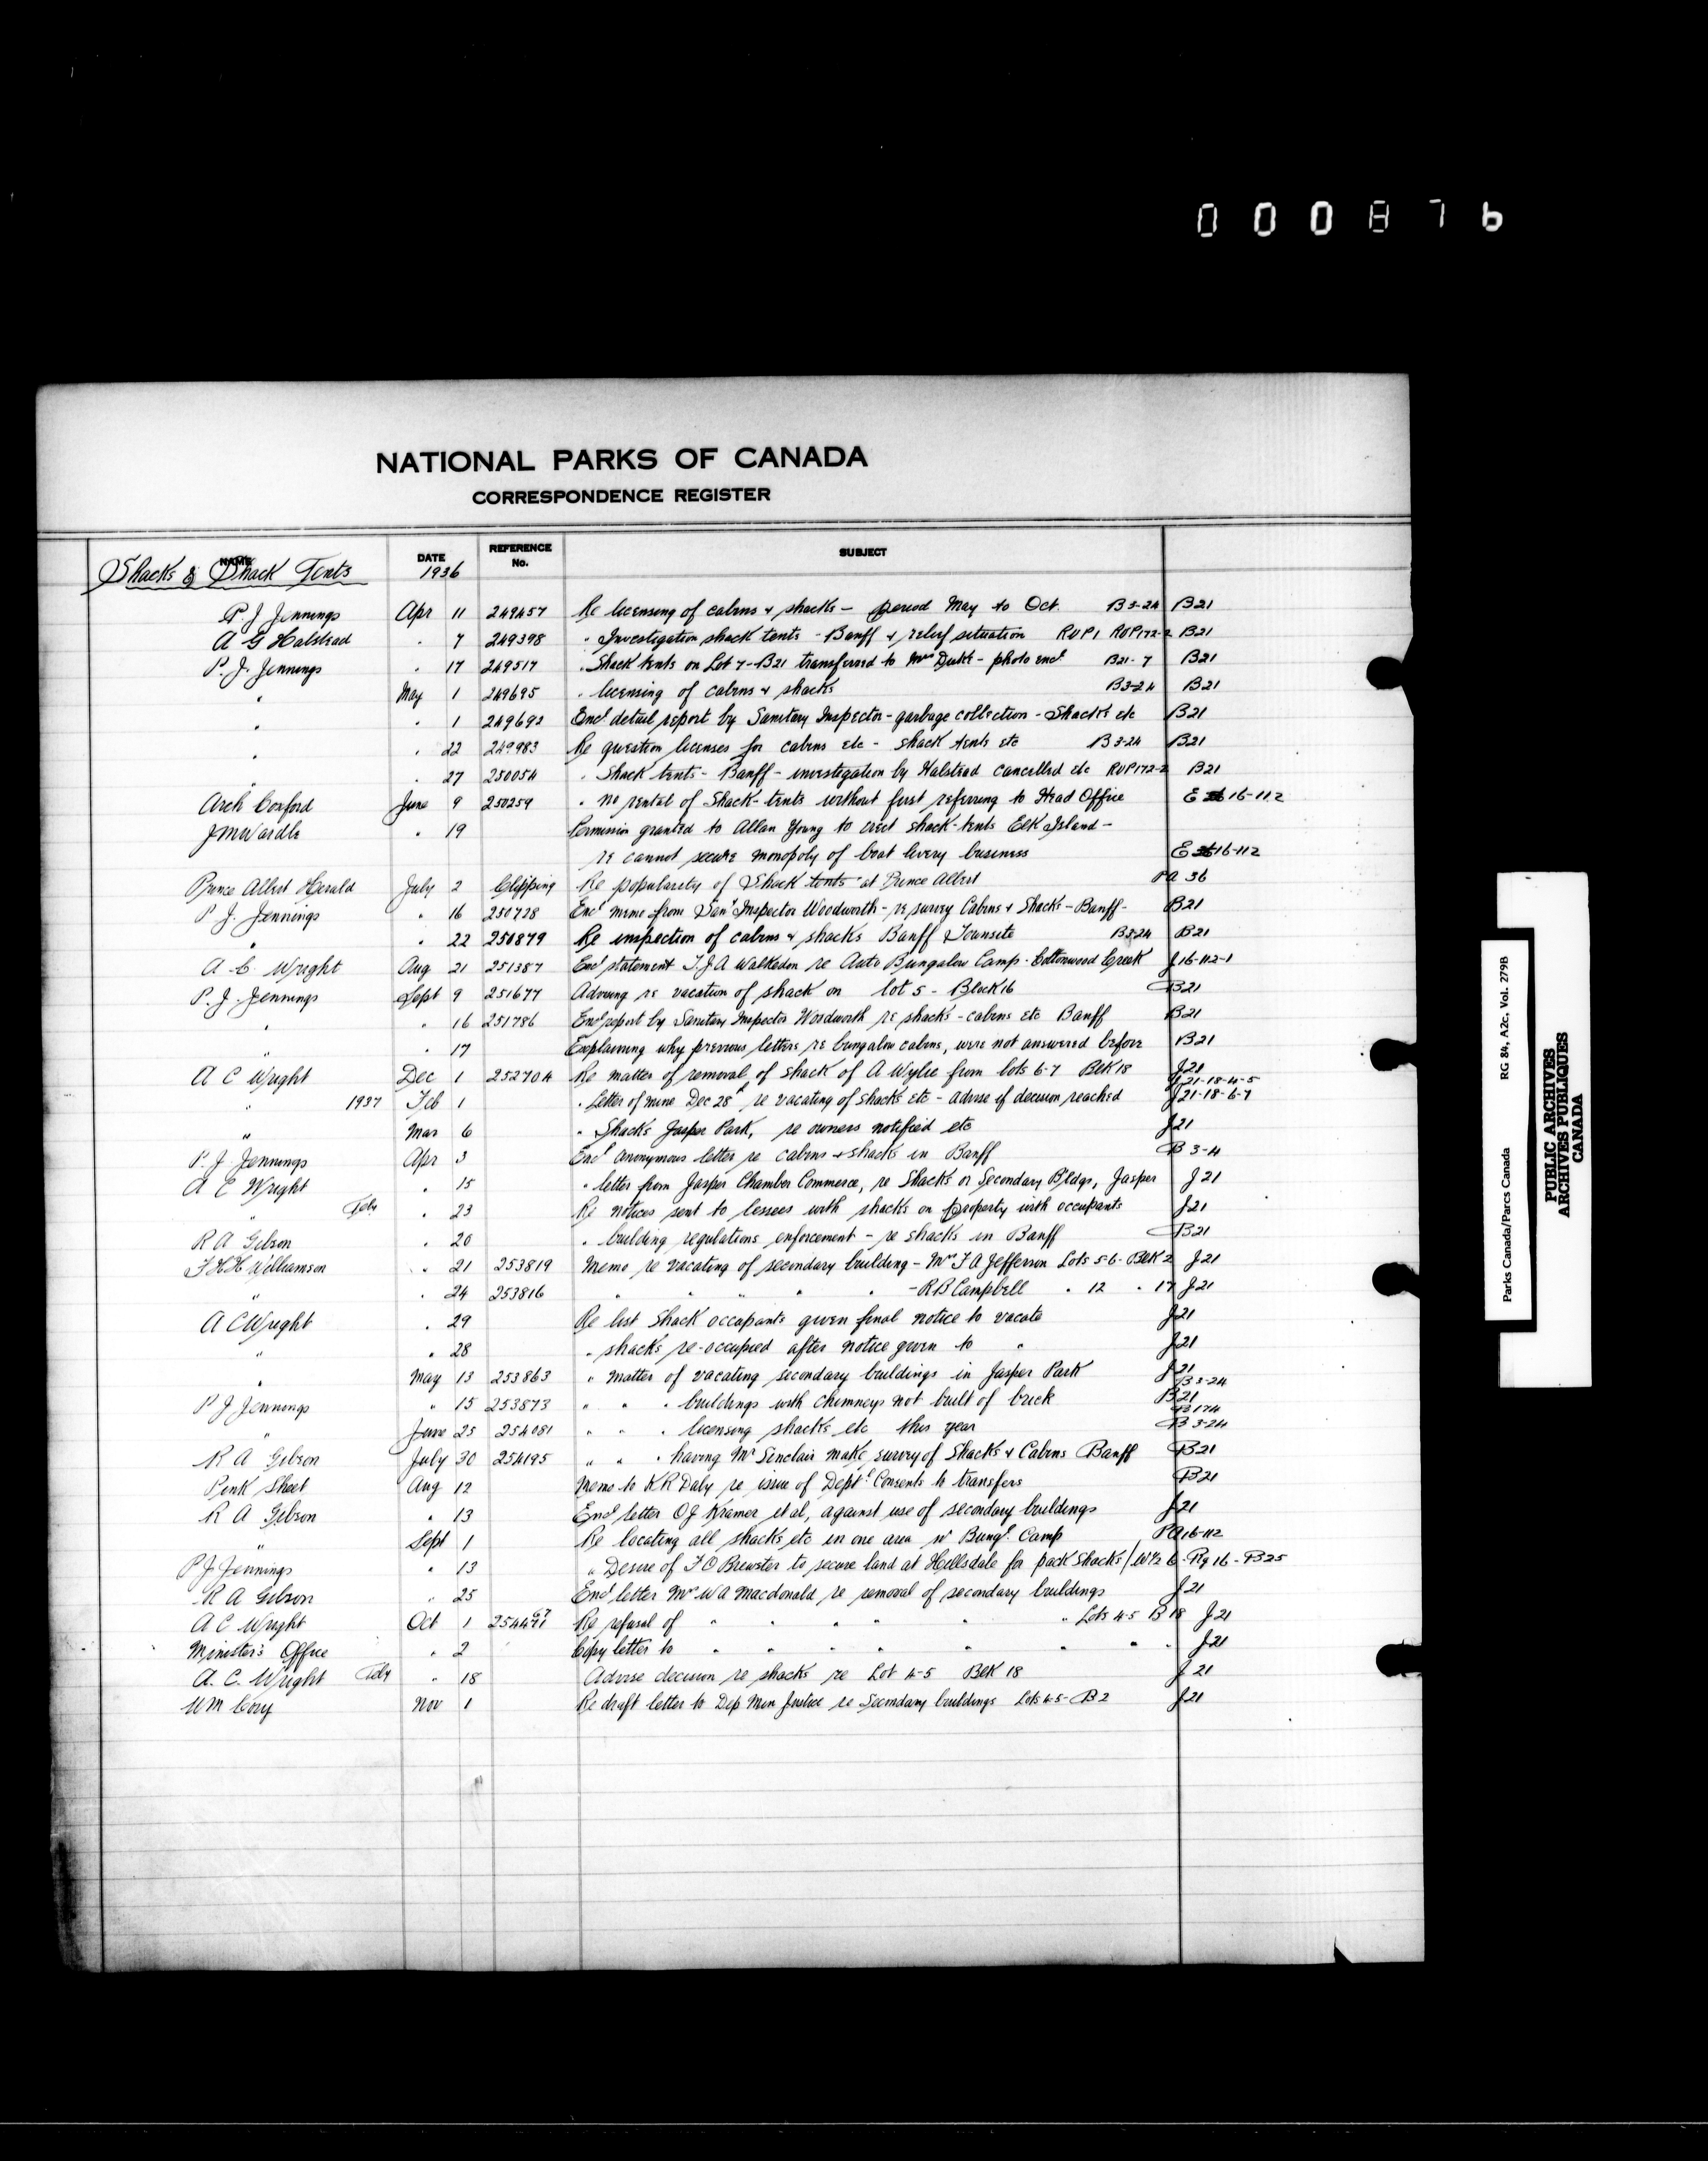 000876
NATIONAL PARKS OF CANADA
CORRESPONDENCE REGISTER
NAME DATE REFERENCE No. SUBJECT
Shacks & Shack Tents 1936
P. J Jennings Apr 11 249457 Re licensing of cabins & shacks - period May to Oct. B3-24 B21
A G Halstead " 7 249398 " Investigation shack tents - Banff & relief situation RVP1 RVP172-2 B21
P. J. Jennings " 17 249517 " Shack tents on Lot 7-B21 transferred to Mrs Duke - photo encl B21-7 B21
" May 1 249695 " licensing of cabins & shacks B3-24 B21
" " 1 249692 Encl detail report by Sanitary Inspector - garbage collection - Shacks etc B21
" " 22 249983 Re question licenses for cabins etc - shack tents etc B3-24 B21
" " 27 250054 " Shack tents - Banff - investigation by Halstead cancelled etc RVP172-2 B21
Arch Coxford June 9 250259 " no rental of Shack-tents without first referring to Head Office E 16-112
JMWardle " 19 Permission granted to Allan Young to erect shack-tents Elk Island -
re cannot secure monopoly of boat livery business E 16-112
Prince Albert Herald July 2 Clipping Re popularity of Shack tents at Prince Albert PA 36
P. J. Jennings " 16 250728 Encl memo from Sany Inspector Woodworth - re survey Cabins & Shacks - Banff - B21
" " 22 250879 Re inspection of cabins & shacks Banff Townsite B3-24 B21
A C Wright Aug 21 251387 Encl statement T.J.A Walkeden re Auto Bungalow Camp - Cottonwood Creek J16-112-1
P. J. Jennings Sept 9 251677 Advising re vacation of shack on lot 5 - Block 16 B21
" " 16 251786 Encl report by Sanitary Inspector Woodworth re shacks - cabins etc Banff B21
" " 17 Explaining why previous letters re bungalow cabins, were not answered before B21
A C Wright Dec 1 252704 Re matter of removal of shack of A Wylie from lots 6-7 Blk 18 J21
J21-18-4-5
" 1937 Feb 1 " Letter of mine Dec 28 re vacating of shacks etc - advise if decision reached J21-18-6-7
" Mar 6 " Shacks Jasper Park, re owners notified etc J21
P. J. Jennings Apr 3 Encl anonymous letter re cabins & shacks in Banff B 3-4
A C Wright " 15 " letter from Jasper Chamber Commerce, re Shacks or Secondary Bldgs, Jasper J21
" " 23 Re notices sent to lessees with shacks on property with occupants J21
R A Gibson " 20 " building regulations enforcement - re shacks in Banff B21
F H H Williamson " 21 253819 Memo re vacating of secondary building - Mrs F A Jefferson Lots 5-6-Blk 2 J21
" 24 253816 " " " " " - R B Campbell " 12 " 17 J21
A C Wright " 29 Re list Shack occupants given final notice to vacate J21
" " 28 " shacks re-occupied after notice given to " J21
" May 13 253863 " matter of vacating secondary buildings in Jasper Park J21
B3-24
P J Jennings " 15 253873 " " " buildings with chimneys not built of brick B21
B174
" June 25 254081 " " " licensing shacks etc this year B 3-24
R A Gibson July 30 254195 " " " having Mr Sinclair make survey of Shacks & Cabins Banff B21
Pink Sheet Aug 12 Memo to K R Daly re issue of Deptl Consents to transfers B21
R A Gibson " 13 Encl letter O J Kramer et al, against use of secondary buildings J21
" Sept 1 Re locating all shacks etc in one area nr Bungl. Camp PA16-112
P J Jennings " 13 " Desire of F O Brewster to secure land at Hillsdale for pack shacks / W½ 6-Rg 16-B25
R A Gibson " 25 Encl letter Mrs W A Macdonald re removal of secondary buildings J21
A C Wright Oct 1 Re refusal of " " " " " " Lots 4-5 B 18 J21
Minister's Office " 2 Copy letter to " " " " " " " J21
A. C. Wright " 18 Advise decision re shacks re Lot 4-5 Blk 18 J21
W M Cory Nov 1 Re draft letter to Dep Min Justice re Secondary buildings Lots 4-5-B2 J21
Parks Canada/Parcs Canada RG 84, A2c, Vol. 279B
PUBLIC ARCHIVES
ARCHIVES PUBLIQUES
CANADA